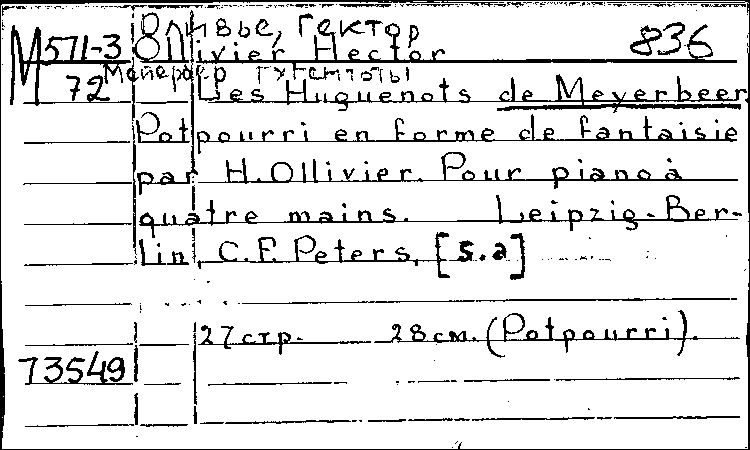 Оливье, Гектор
М571-3 Ollivier Hector 836
72 Мейербер Гугеноты
Les Huguenots de Meyerbeer.
Potpourri en forme de fantaisie
par H. Ollivier. Pour piano à
quatre mains. Leipzig-Ber-
lin, C.F. Peters, [s.a]
27 стр. 28 см. (Potpourri).
73549